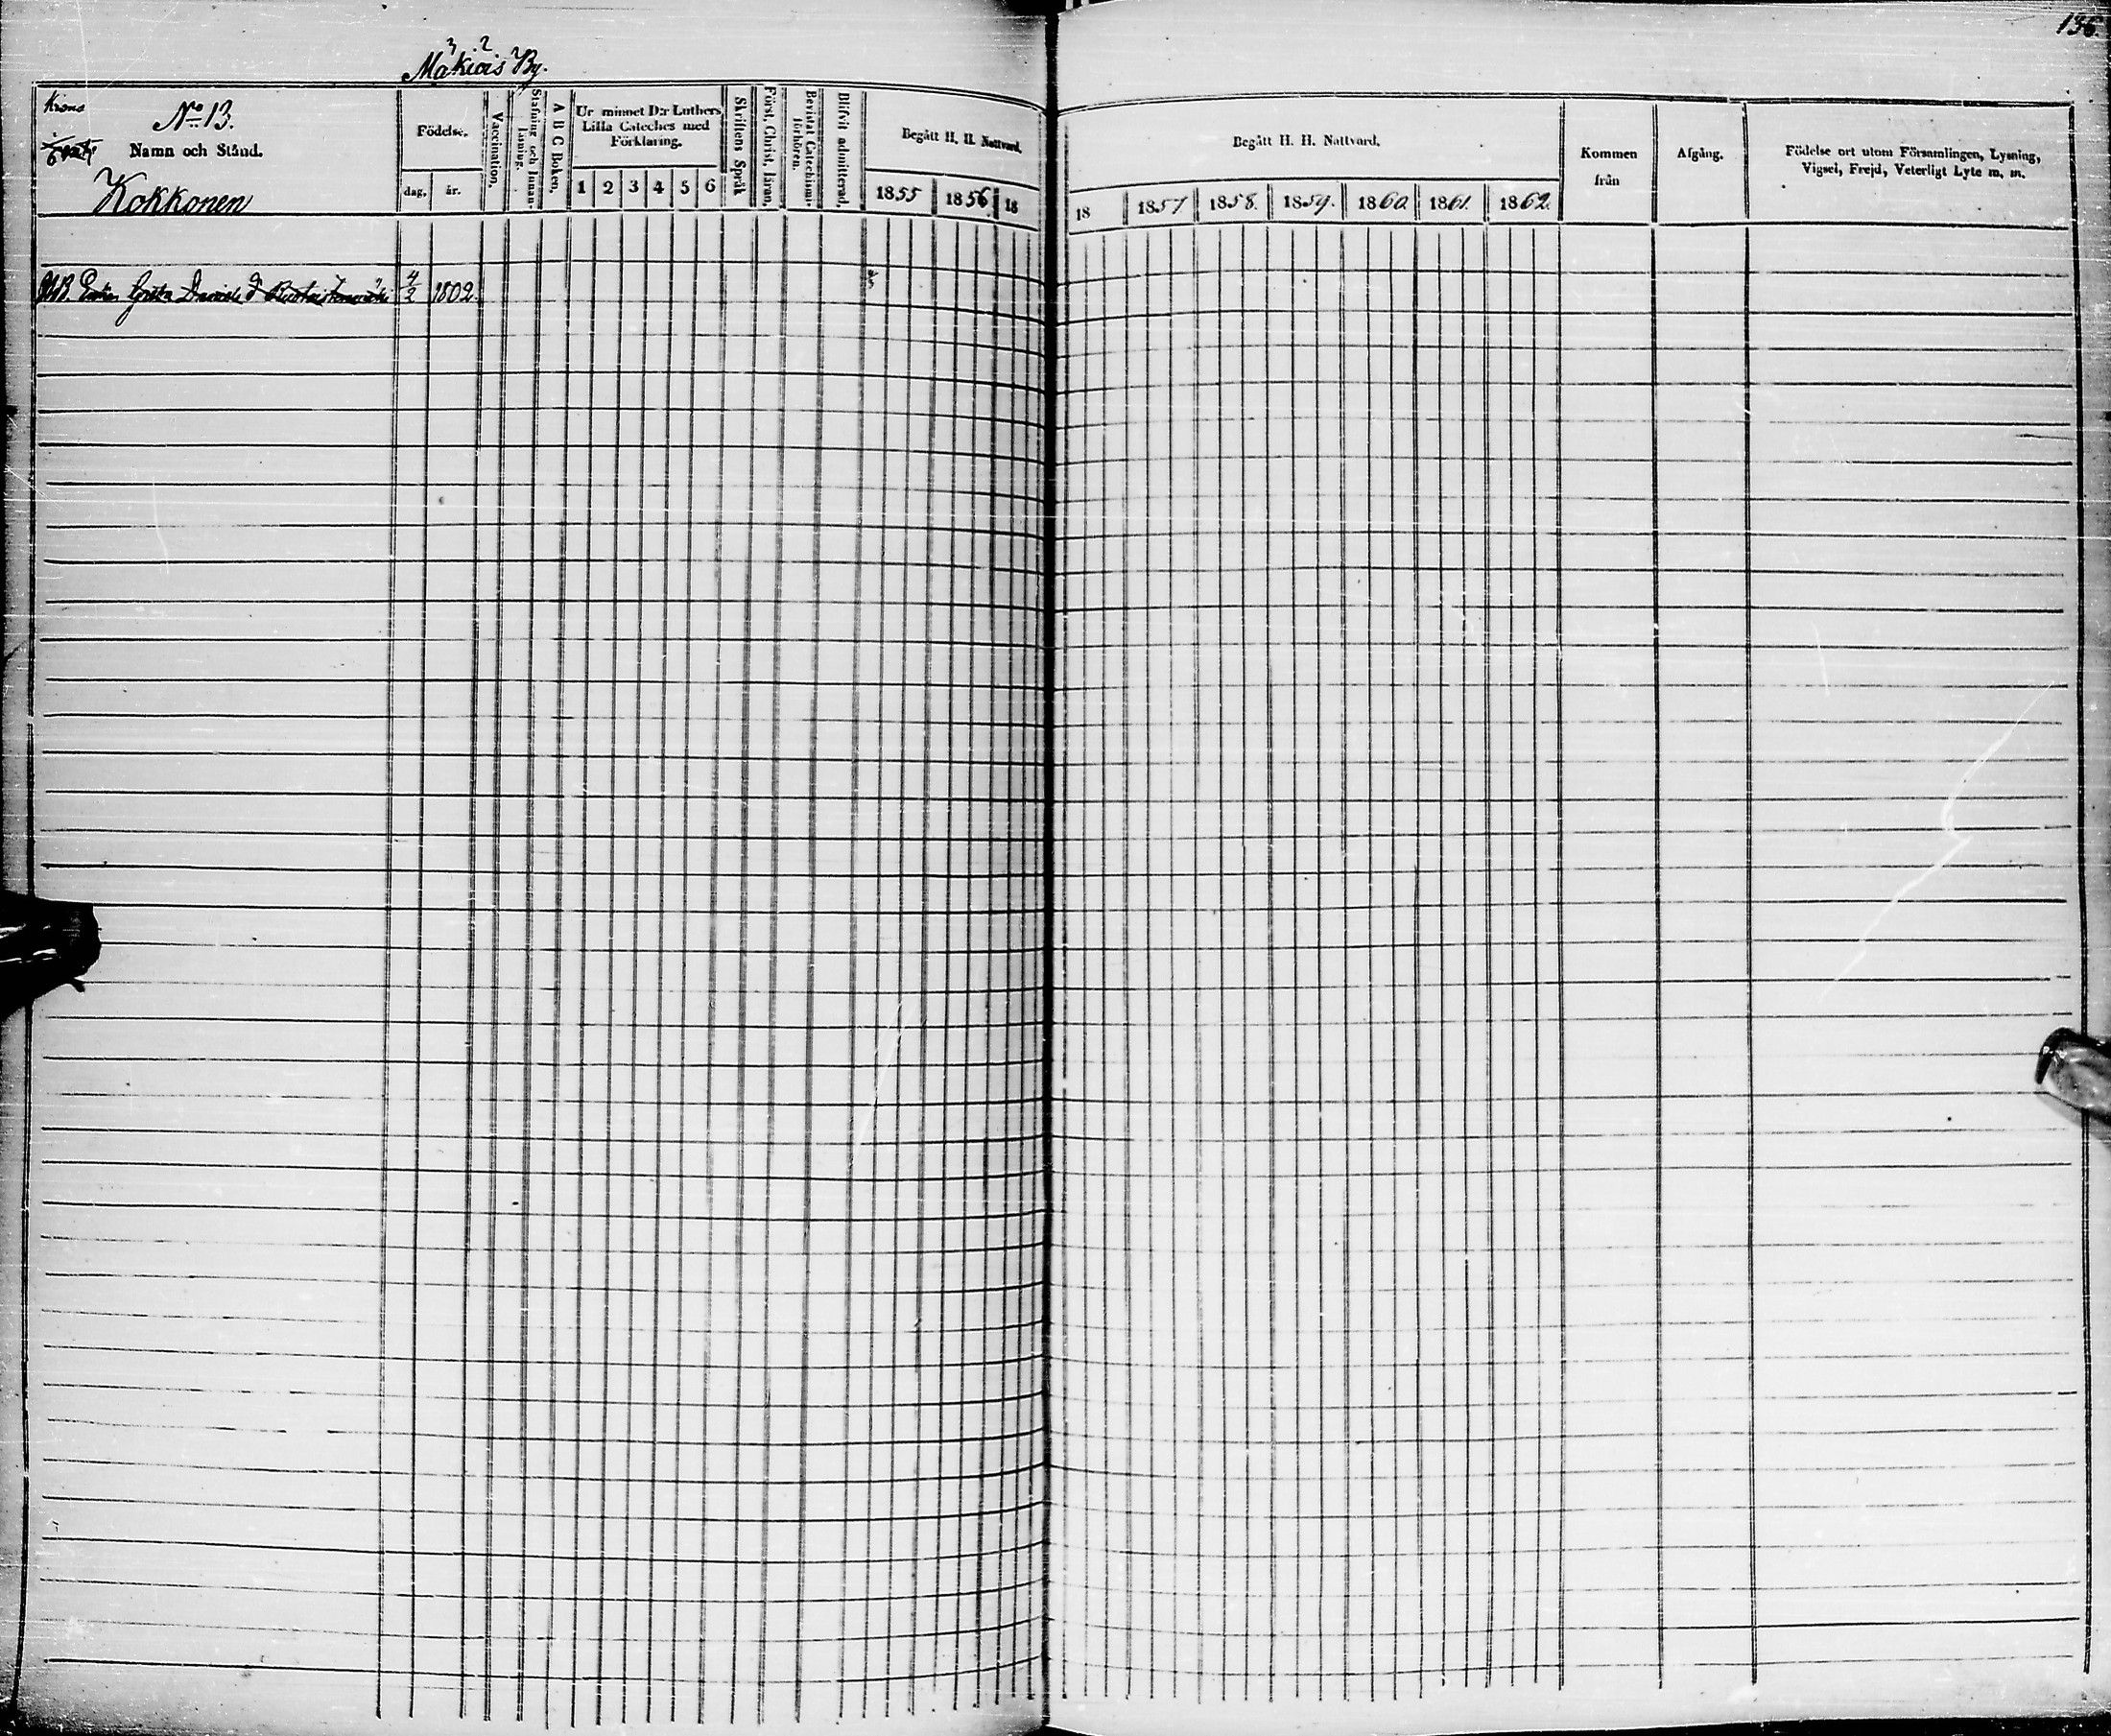 136.
Makiais By.
Krono
No 13.
Namn och Stånd.
Kokkonen
Födelse.
dag, år.
Vaccination,
Stafning och Innan-läsning.
A B C Boken,
Ur minnet D:r Luthers
Lilla Cateches med
Förklaring.
1 2 3 4 5 6
Skriftens Språk
Först, Christ, läran,
Bevistat Catechismi-förhören.
Blifvit admitterad,
Begått H. H. Nattvard.
1855 1856. 18
Begått H. H. Nattvard.
18 1857. 1858. 1859. 1860. 1861. 1862.
Kommen
från
Afgång.
Födelse ort utom Församlingen, Lysning,
Vigsel, Frejd, Veterligt Lyte m. m.
Enkan Greta Daniels d 4/2 1802.